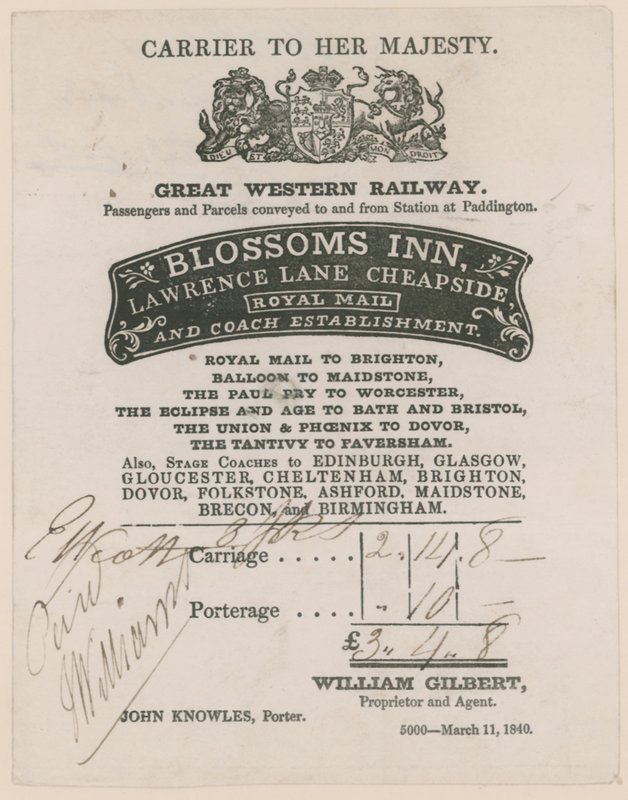 CARRIER TO HER MAJESTY.
DIEU ET MON DROIT
GREAT WESTERN RAILWAY.
Passengers and Parcels conveyed to and from Station at Paddington.
BLOSSOMS INN,
LAWRENCE LANE CHEAPSIDE,
ROYAL MAIL
AND COACH ESTABLISHMENT.
ROYAL MAIL TO BRIGHTON,
BALLOON TO MAIDSTONE,
THE PAUL PRY TO WORCESTER,
THE ECLIPSE AND AGE TO BATH AND BRISTOL,
THE UNION & PHŒNIX TO DOVOR,
THE TANTIVY TO FAVERSHAM.
Also, STAGE COACHES to EDINBURGH, GLASGOW,
GLOUCESTER, CHELTENHAM, BRIGHTON,
DOVOR, FOLKSTONE, ASHFORD, MAIDSTONE,
BRECON, and BIRMINGHAM.
Carriage ..... 2 . 14 . 8 —
Porterage .... " 10 —
£ 3 " 4 " 8
Williams
WILLIAM GILBERT,
Proprietor and Agent.
JOHN KNOWLES, Porter.
5000—March 11, 1840.